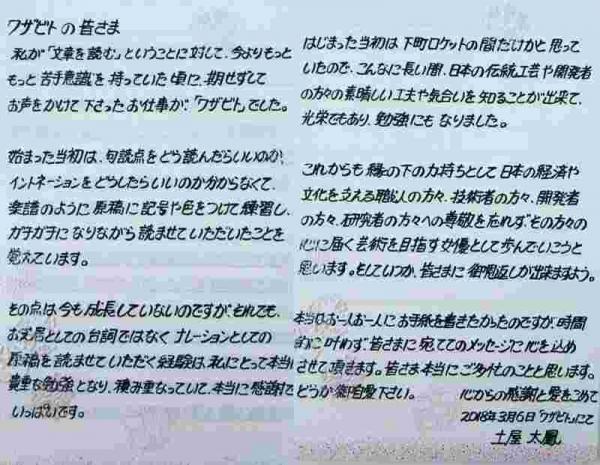 ワザビトの皆さま
私が「文章を読む」ということに対して、今よりもっと
もっと苦手意識を持っていた頃に、期せずして
お声をかけて下さったお仕事が、「ワザビト」でした。
始まった当初は、句読点をどう読んだらいいのか、
イントネーションをどうしたらいいのか分からなくて、
楽譜のように原稿に記号や色をつけて練習し、
ガチガチになりながら読ませていただいたことを
覚えています。
その点は今も成長していないのですが、それでも、
お芝居としての台詞ではなくナレーションとしての
原稿を読ませていただく経験は、私にとって本当に
貴重な勉強となり、積み重なっていて、本当に感謝で
いっぱいです。
はじまった当初は下町ロケットの間だけかと思って
いたので、こんなに長い間、日本の伝統工芸や開発者
の方々の素晴しい工夫や気合いを知ることが出来て、
光栄でもあり、勉強にもなりました。
これからも縁の下の力持ちとして日本の経済や
文化を支える職人の方々、技術者の方々、開発者
の方々、研究者の方々への尊敬を忘れず、その方々の
心に届く芸術を目指す女優として歩んでいこうと
思います。そしていつか、皆さまに御恩返しが出来ますよう。
本当はお一人お一人にお手紙を書きたかったのですが、時間
的に叶わず、皆さまに宛ててのメッセージに心を込め
させて頂きます。皆さま本当にご多忙のことと思います。
どうか御自愛下さい。
心からの感謝と愛をこめて
2018年3月6日「ワザビト」にて
土屋太鳳